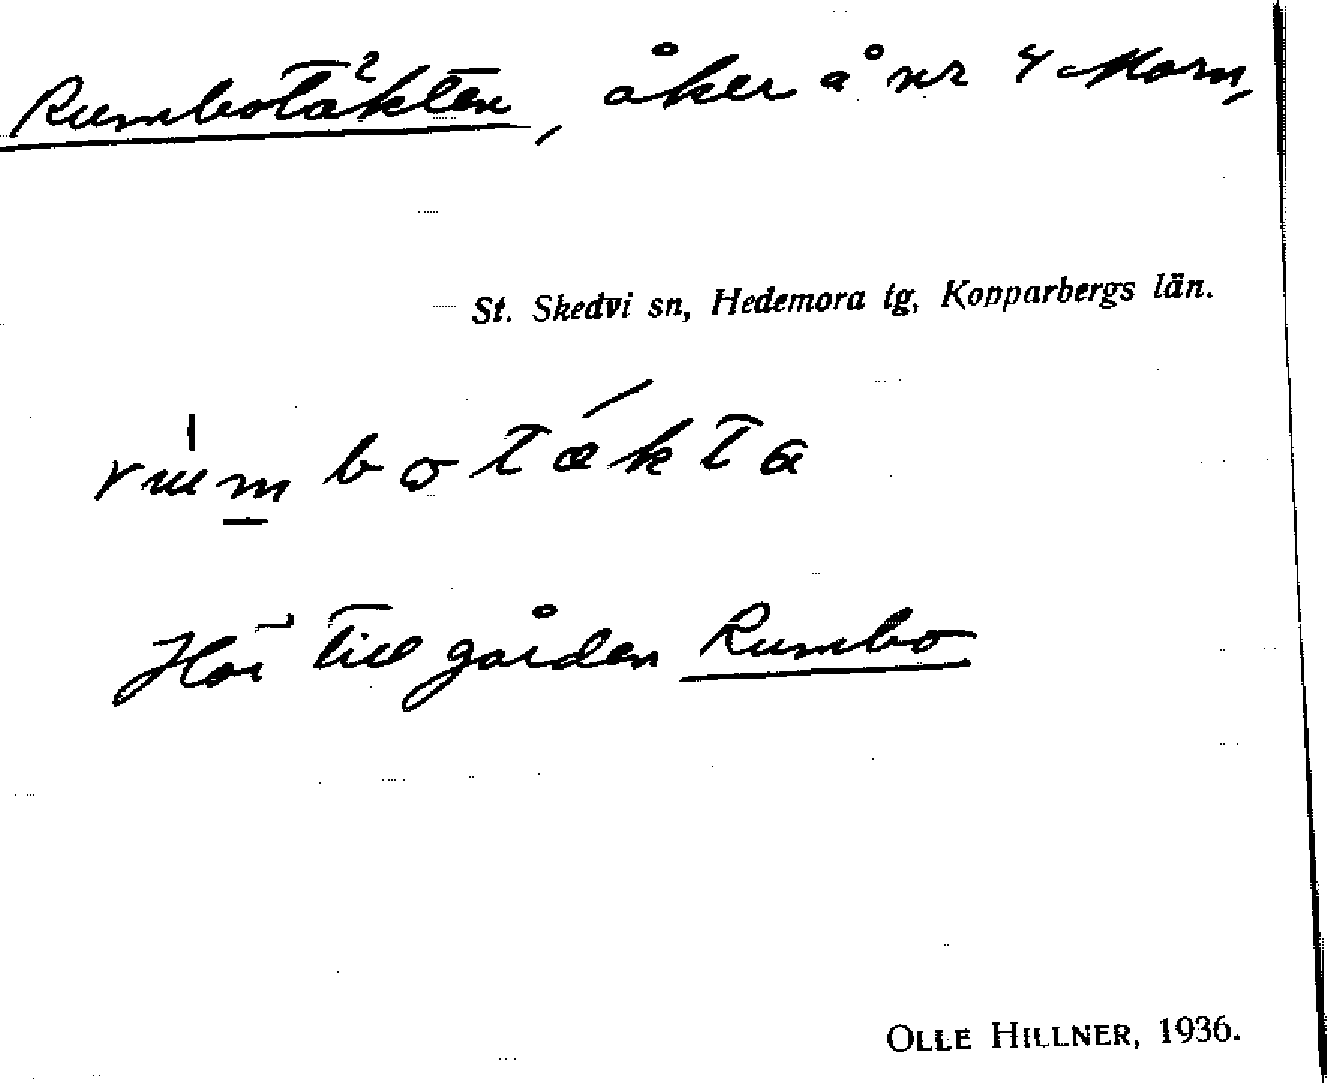 Rumbotäkten, åker å nr 4 Morn,
St. Skedvi sn, Hedemora tg, Kopparbergs län.
rumbotækta
Hör till gården Rumbo
OLLE HILLNER, 1936.